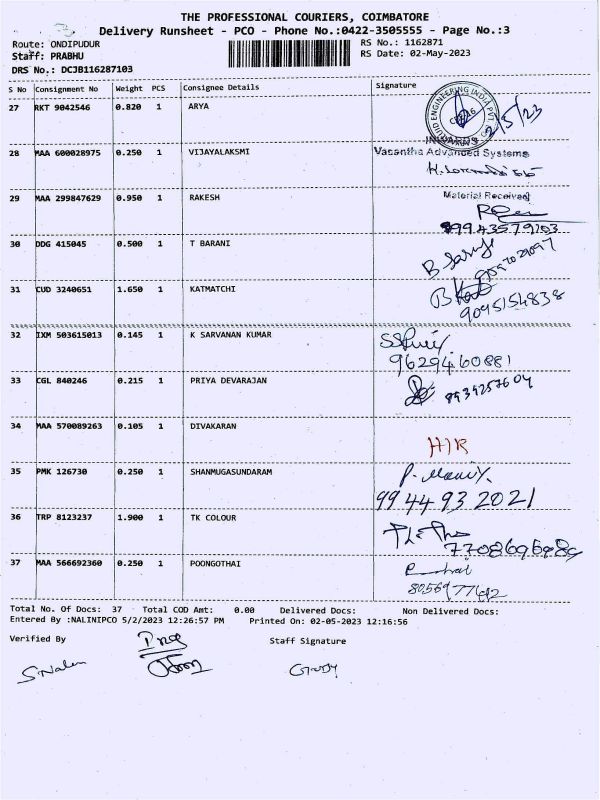 THE PROFESSIONAL COURIERS, COIMBATORE
Delivery Runsheet - PCO - Phone No.:0422-3505555 - Page No.:3
Route: ONDIPUDUR RS No.: 1162871
Staff: PRABHU RS Date: 02-May-2023
DRS No.: DCJB116287103
S No Consignment No Weight PCS Consignee Details Signature
27 RKT 9042546 0.820 1 ARYA
2/5/23
INWARDS
28 MAA 600028975 0.250 1 VIJAYALAKSMI Vasantha Advanced Systems
29 MAA 299847629 0.950 1 RAKESH Material Received
30 DDG 415045 0.500 1 T BARANI
31 CUD 3240651 1.650 1 KATMATCHI
9045154838
32 IXM 503615013 0.145 1 K SARVANAN KUMAR
9629460881
33 CGL 840246 0.215 1 PRIYA DEVARAJAN
8939257604
34 MAA 570089263 0.105 1 DIVAKARAN
H/R
35 PMK 126730 0.250 1 SHANMUGASUNDARAM
9944932021
36 TRP 8123237 1.900 1 TK COLOUR
37 MAA 566692360 0.250 1 POONGOTHAI
Total No. Of Docs: 37 Total COD Amt: 0.00 Delivered Docs: Non Delivered Docs:
Entered By :NALINIPCO 5/2/2023 12:26:57 PM Printed On: 02-05-2023 12:16:56
Verified By Staff Signature